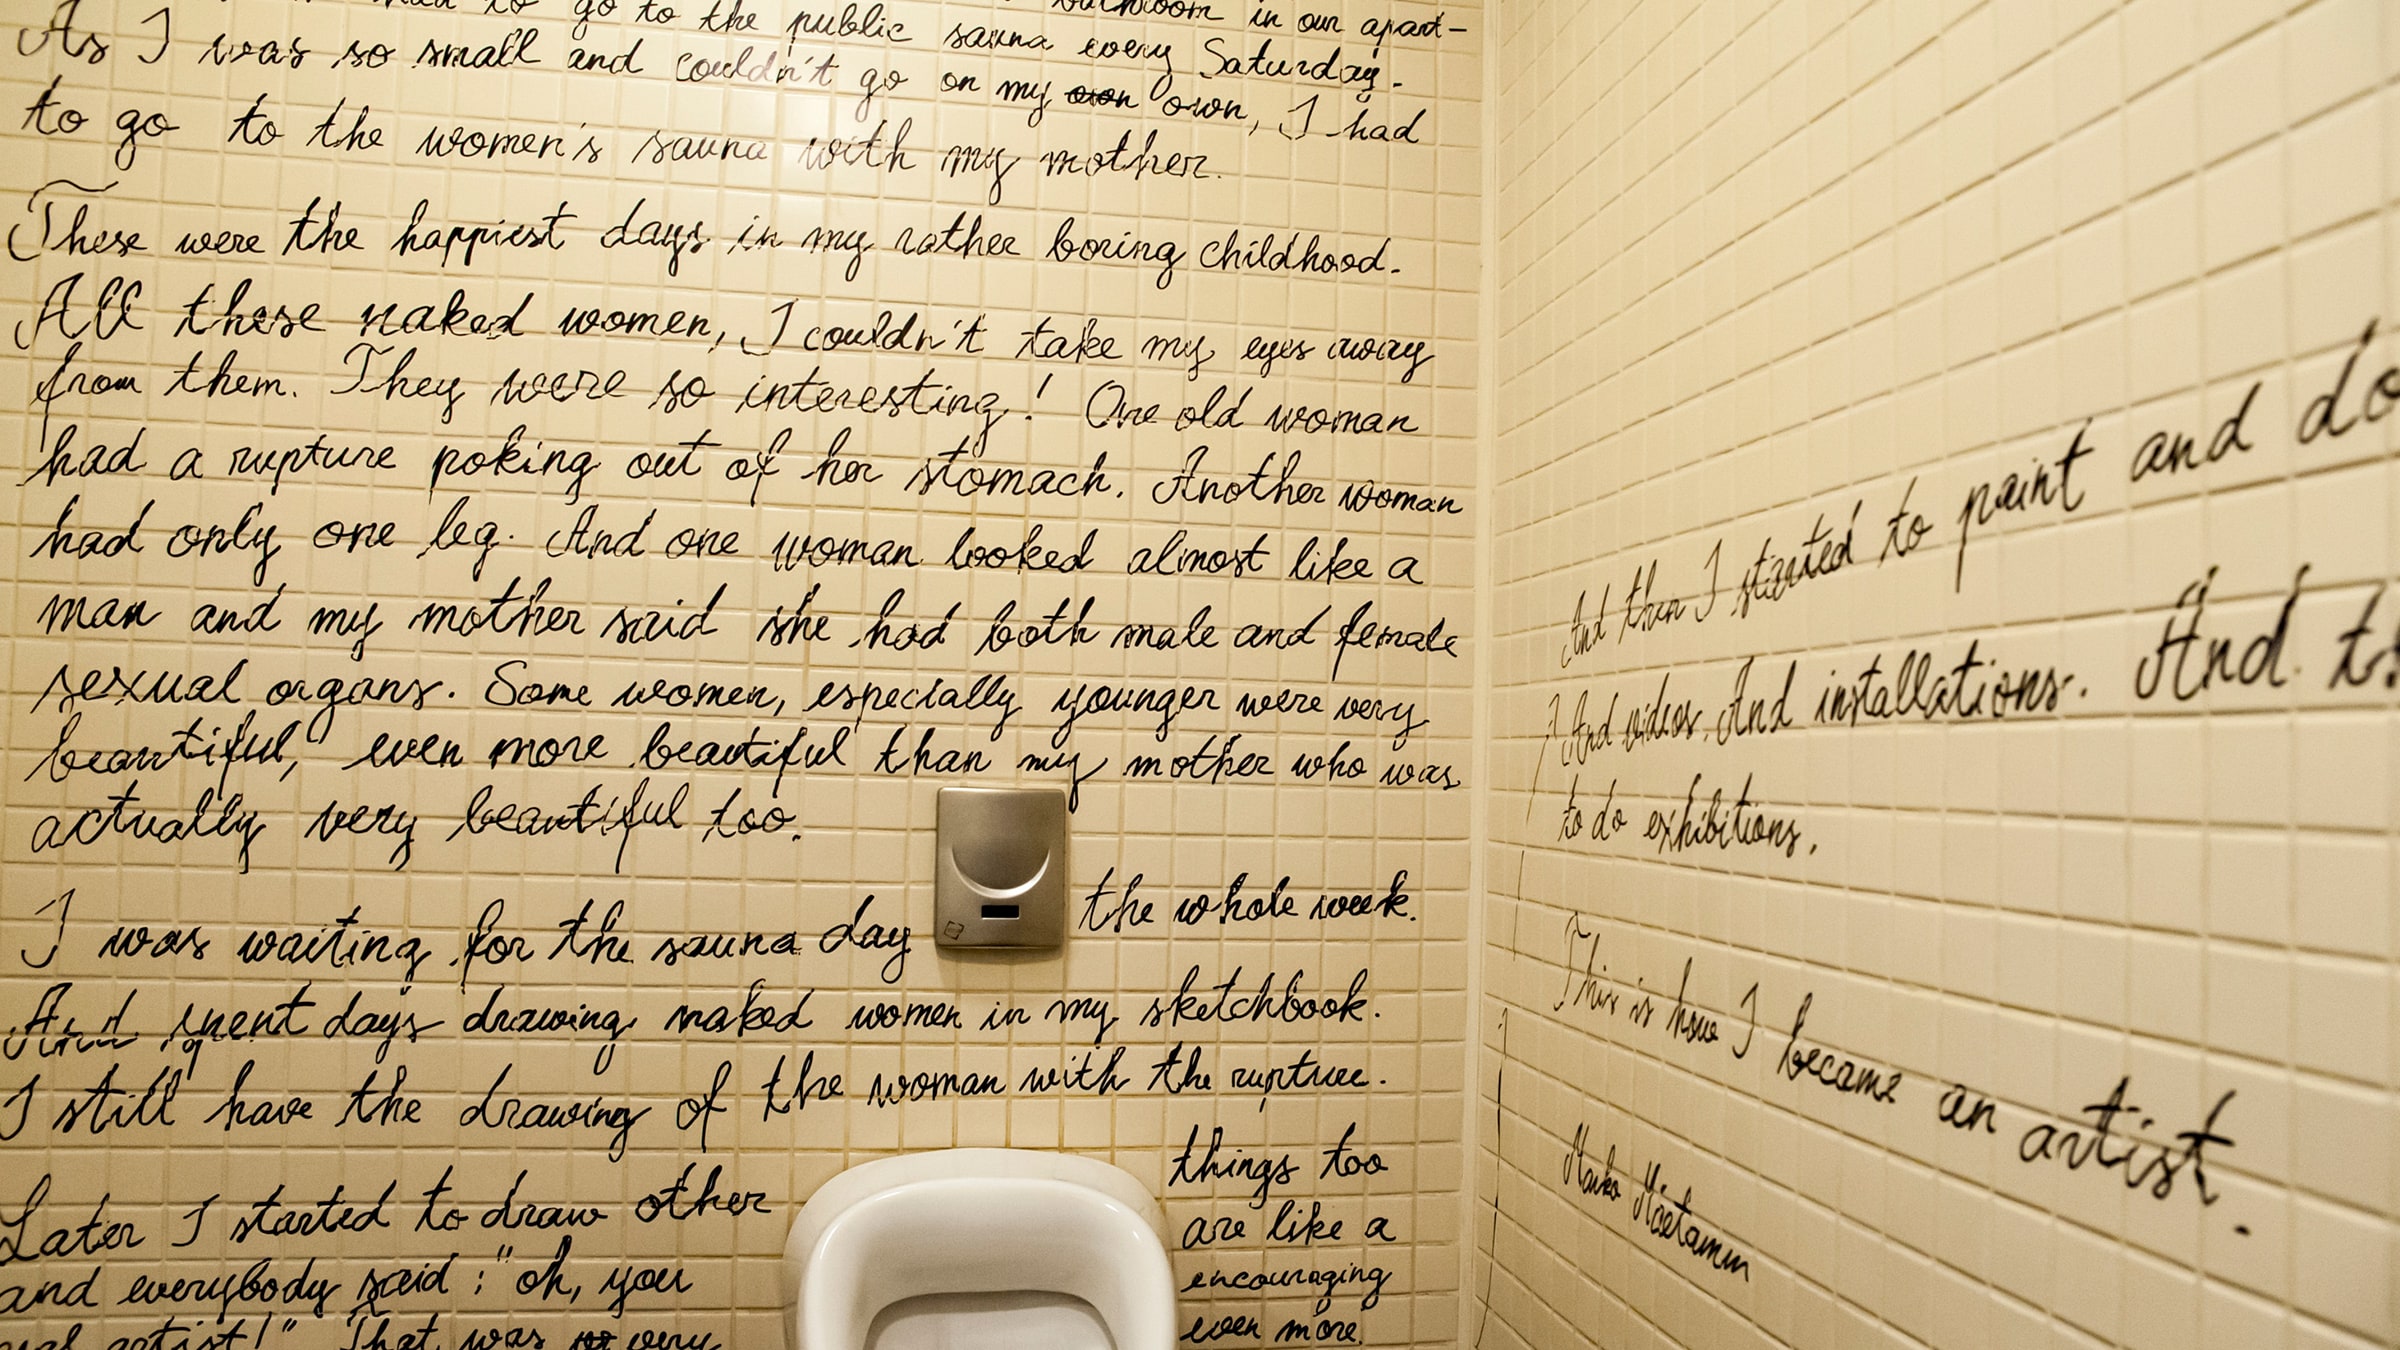 had to go to the public sauna every Saturday.
bathroom in our apart-
As I was so small and couldn't go on my own own, I had
to go to the women's sauna with my mother.
These were the happiest days in my rather boring childhood.
All these naked women, I couldn't take my eyes away
from them. They were so interesting! One old woman
had a rupture poking out of her stomach. Another woman
had only one leg. And one woman looked almost like a
man and my mother said she had both male and female
sexual organs. Some women, especially younger were very
beautiful, even more beautiful than my mother who was
actually very beautiful too.
I was waiting for the sauna day the whole week.
And spent days drawing naked women in my sketchbook.
I still have the drawing of the woman with the rupture.
Later I started to draw other things too
and everybody said: "oh, you are like a
artist!" That was very encouraging
even more.
And then I started to paint and do
And videos. And installations. And
to do exhibitions.
This is how I became an artist.